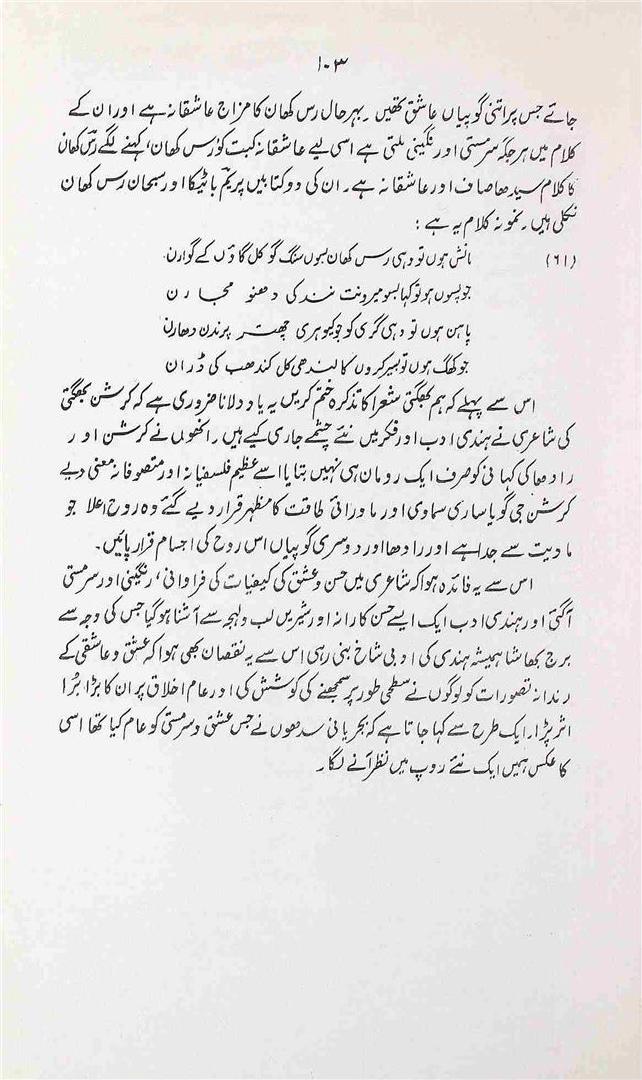 ۱۰۳
جاتے جس پر اتنی گوپیاں عاشق تھیں۔ بہرحال رس کھان کا مزاج عاشقانہ ہے اور ان کے
کلام میں ہر جگہ سرمستی اور رنگینی ملتی ہے اسی لیے عاشقانہ کبت کو ’رس کھان‘، کہنے لگے رس کھانی
کا کلام سیدھا صاف اور عاشقانہ ہے۔ ان کی دو کتابیں پریم باٹیکا اور سبحان رس کھان
نکلی ہیں۔ نمونہ کلام یہ ہے :
(۶۱) مانش ہوں تو وہی رس کھان بسوں سنگ گوکل گاؤں کے گوارن
جو پسوں ہو تو کہا بسو میرو نت نند کی دھنو مجھارن
پاہن ہوں تو وہی گری کو جو کیو ہری چھتر پرندن دھارن
جو کھگ ہوں تو بسیر کروں کالندھی کل کندھب کی ڈران
اس سے پہلے کہ ہم بھگتی شعرا کا تذکرہ ختم کریں یہ یاد دلانا ضروری ہے کہ کرشن بھگتی
کی شاعری نے ہندی ادب اور فکر میں نئے چشمے جاری کیے ہیں۔ انھوں نے کرشن اور
رادھا کی کہانی کو صرف ایک رومان ہی نہیں بتایا اسے عظیم فلسفیانہ اور متصوفانہ معنی دیے
کرشن جی گویا ساری سماوی اور ماورائی طاقت کا مظہر قرار دیے گئے وہ روح اعلا جو
مادیت سے جدا ہے اور رادھا اور دوسری گوپیاں اس روح کی اجسام قرار پائیں۔
اس سے یہ فائدہ ہوا کہ شاعری میں حسن و عشق کی کیفیات کی فراوانی، رنگینی اور سرمستی
آگئی اور ہندی ادب ایک ایسے حسن کارانہ اور شیریں لب ولہجہ سے آشنا ہوگیا جس کی وجہ سے
برج بھاشا ہمیشہ ہندی کی ادبی شاخ بنی رہی اس سے یہ نقصان بھی ہوا کہ عشق و عاشقی کے
رندانہ تصورات کو لوگوں نے سطحی طور پر سمجھنے کی کوشش کی اور عام اخلاق پر ان کا بڑا بُرا
اثر پڑا۔ ایک طرح سے کہا جاتا ہے کہ بجریانی سدھوں نے جس عشق و سرمستی کو عام کیا تھا اسی
کا عکس ہمیں ایک نئے روپ میں نظر آنے لگا۔